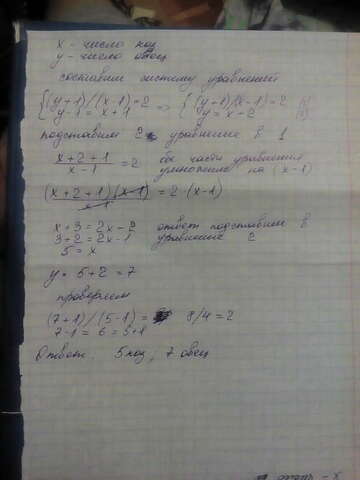 x - число коз
y - число овец
составим систему уравнений
{(y+1)/(x-1)=2 => {(y+1)/(x-1)=2
y-1=x+1 y=x+2
подставим 2 уравнение в 1
x+2+1 / x-1 = 2 обе части уравнения
умножаем на (x-1)
(x+2+1)(x-1) / x-1 = 2·(x-1)
x+3=2x-2 ответ подставим в
3+2=2x-x уравнение 2
5=x
y=5+2=7
проверяем
(7+1)/(5-1)= 8/4=2
7-1=6=5+1
Ответ 5 коз, 7 овец